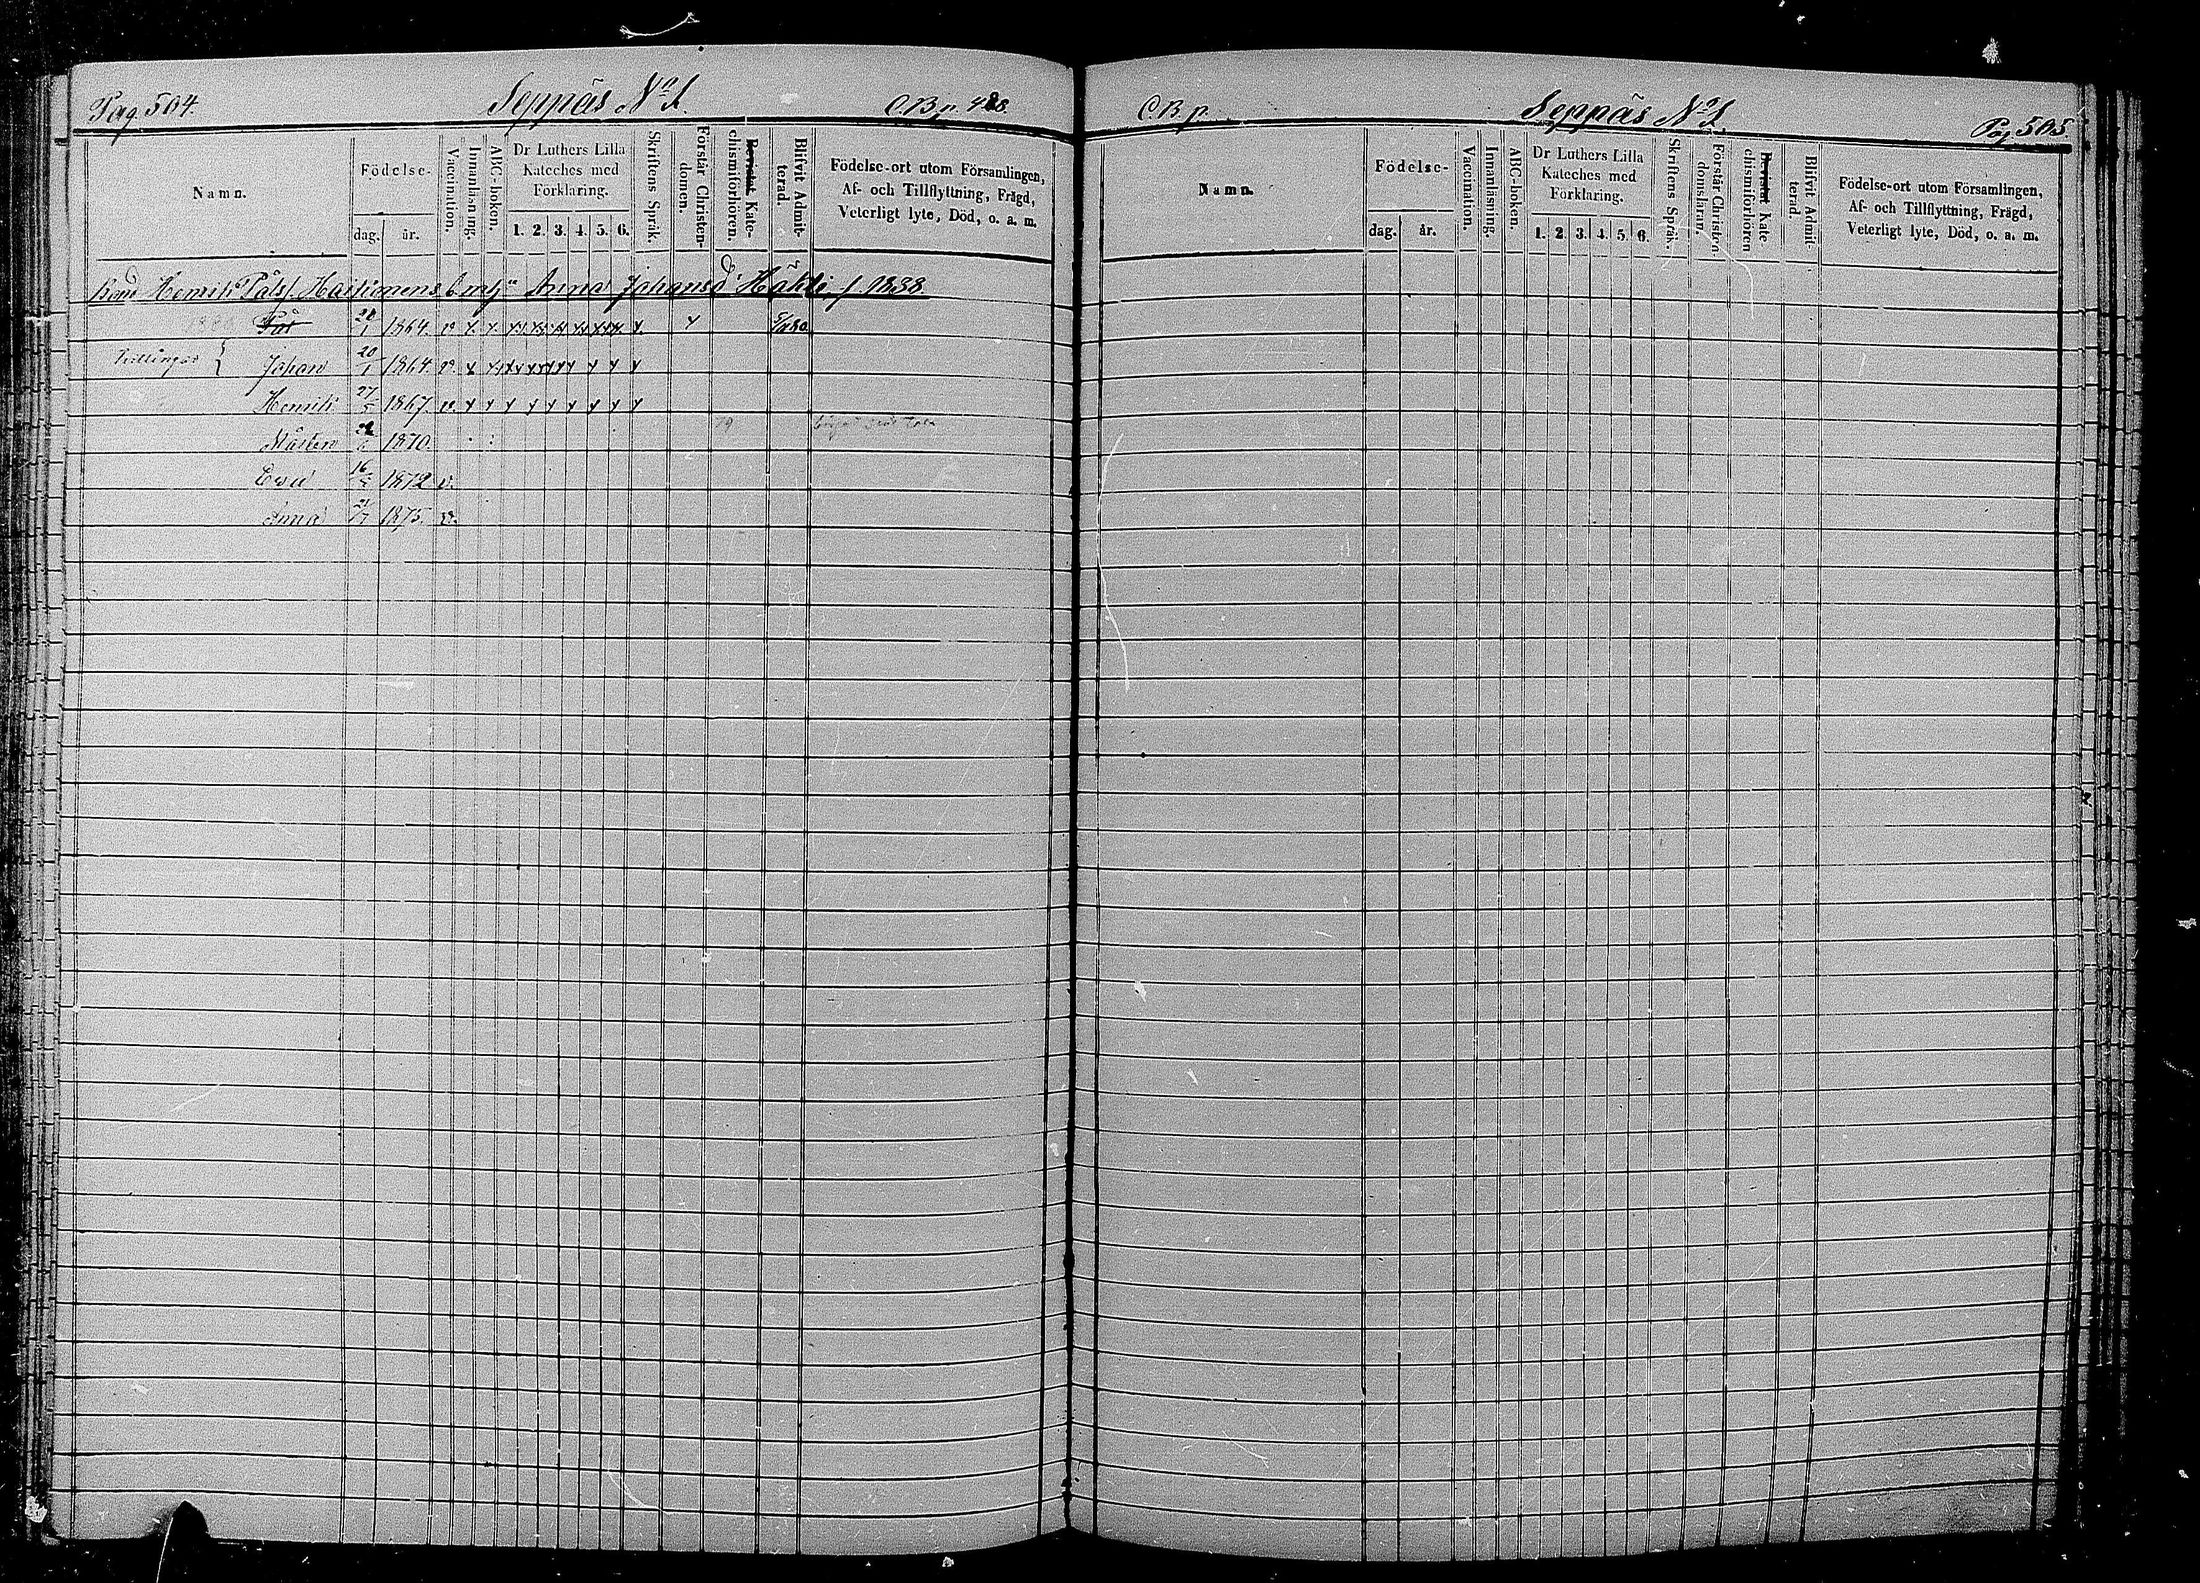 Pag. 504. Seppäs No 1. C.B.p. 488.
Namn.
Födelse-
dag. år.
Vaccination.
Innanläsning.
ABC-boken.
Dr Luthers Lilla
Kateches med
Förklaring.
1. 2. 3. 4. 5. 6.
Skriftens Språk.
Förstår Christen-
domen.
Bevistat Kate-
chismiförhören.
Blifvit Admit-
terad.
Födelse-ort utom Församlingen,
Af- och Tillflyttning, Frägd,
Veterligt lyte, Död, o. a. m.
Henrik Påls
Anna Johansd
1838
Pål 1864. v.
Johan 20/1 1864. v.
Henrik 27/5 1867. v.
1870.
Eva 16 1872 v.
Anna 21 1875. v.
C.B.p. Seppäs No 1. Pag 505
Namn.
Födelse-
dag. år.
Vaccination.
Innanläsning.
ABC-boken.
Dr Luthers Lilla
Kateches med
Förklaring.
1. 2. 3. 4. 5. 6.
Skriftens Språk.
Förstår Christen-
domsläran.
Bevistat Kate
chismiförhören
Blifvit Ad mit-
terad.
Födelse-ort utom Församlingen,
Af- och Tillflyttning, Frägd,
Veterligt lyte, Död, o. a. m.